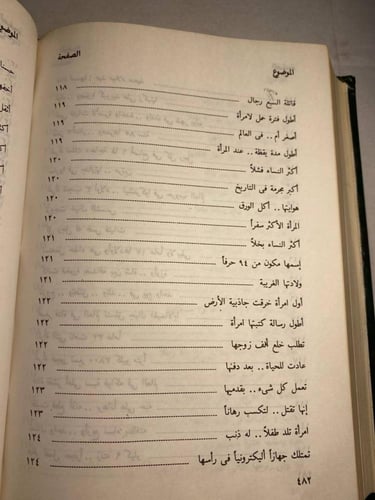 الموضوع الصفحة
قاتلة السبع رجال ١١٨
أطول فترة حمل لامرأة ١١٩
أصغر أم.. في العالم ١١٩
أطول مدة يقظة.. عند المرأة ١١٩
أكثر النساء فشلاً ١٢٠
أكبر مجرمة في التاريخ ١٢٠
هوايتها.. أكل الورق ١٢٠
المرأة الأكثر سفراً ١٢١
أكثر النساء بخلاً ١٢١
إسمها مكون من ٩٤ حرفاً ١٢١
ولادتها الغريبة ١٢١
أول امرأة خرقت جاذبية الأرض ١٢٢
أطول رسالة كتبتها امرأة ١٢٢
تطلب خلع أنف زوجها ١٢٢
عادت للحياة.. بعد دفنها ١٢٢
تعمل كل شيء.. بقدميها ١٢٣
إنها تقتل.. لتكسب رهاناً ١٢٣
امرأة تلد طفلاً.. له ذنب ١٢٤
تمتلك جهازاً أليكترونياً في رأسها ١٢٤
٤٨٢